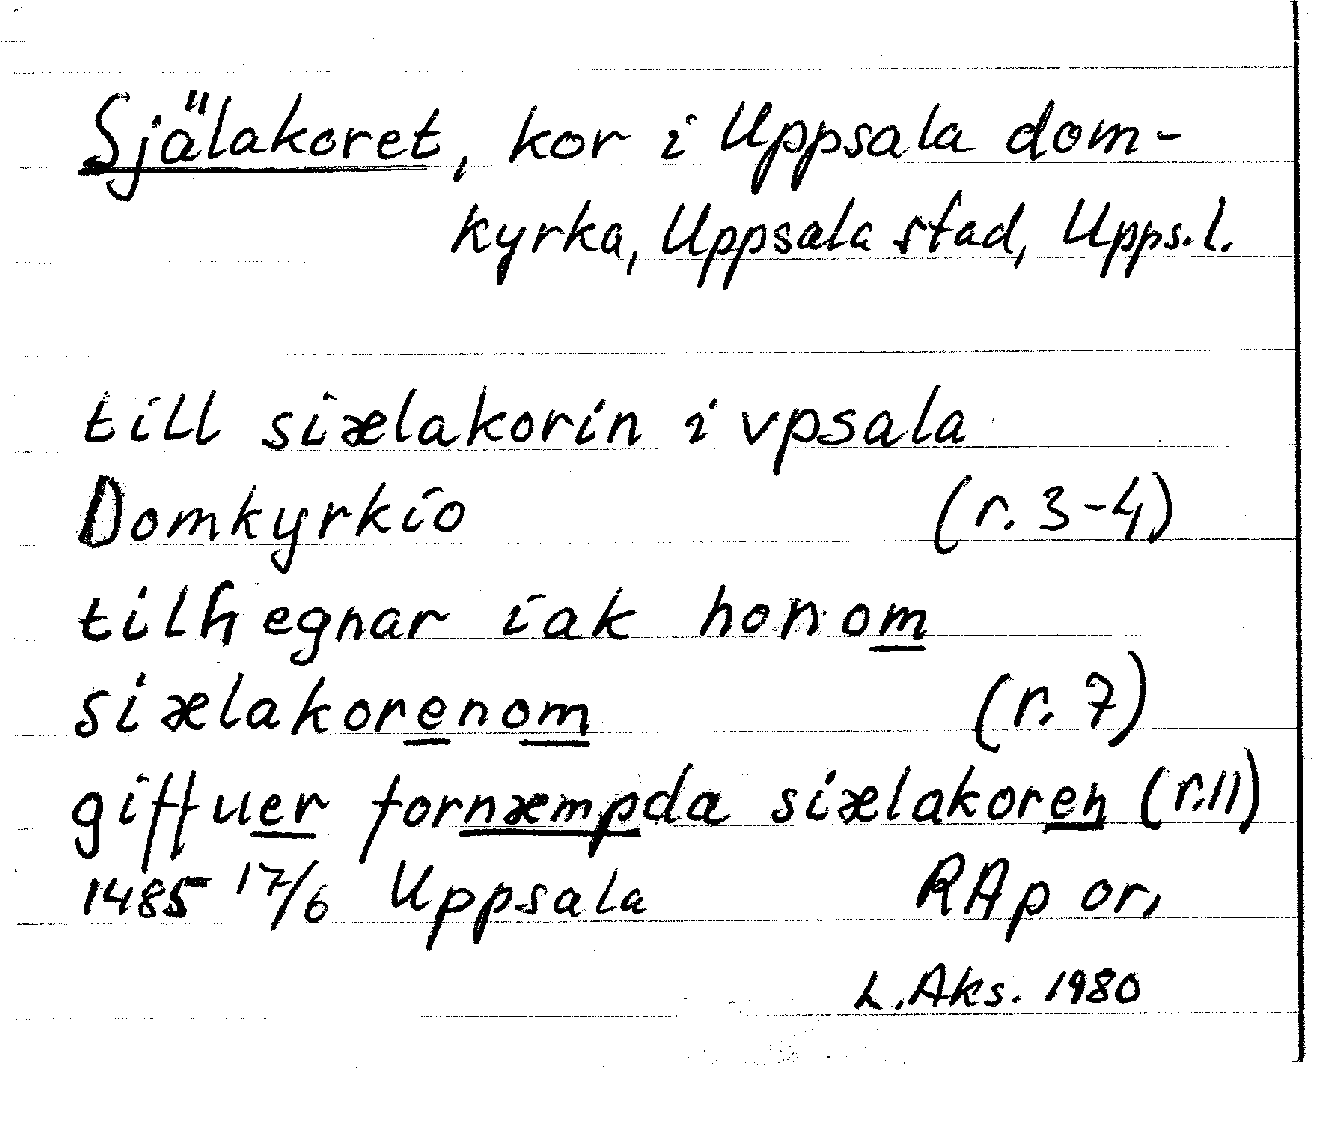 Själakoret, kor i Uppsala dom-
kyrka, Uppsala stad, Upps.l.
till siælakorin i vpsala
Domkyrkio (r. 3-4)
tilhegnar iak honom
siælakorenom (r. 7)
giffuer fornæmpda siælakoren (r.11)
1485 17/6 Uppsala RAp or,
L.Aks. 1980